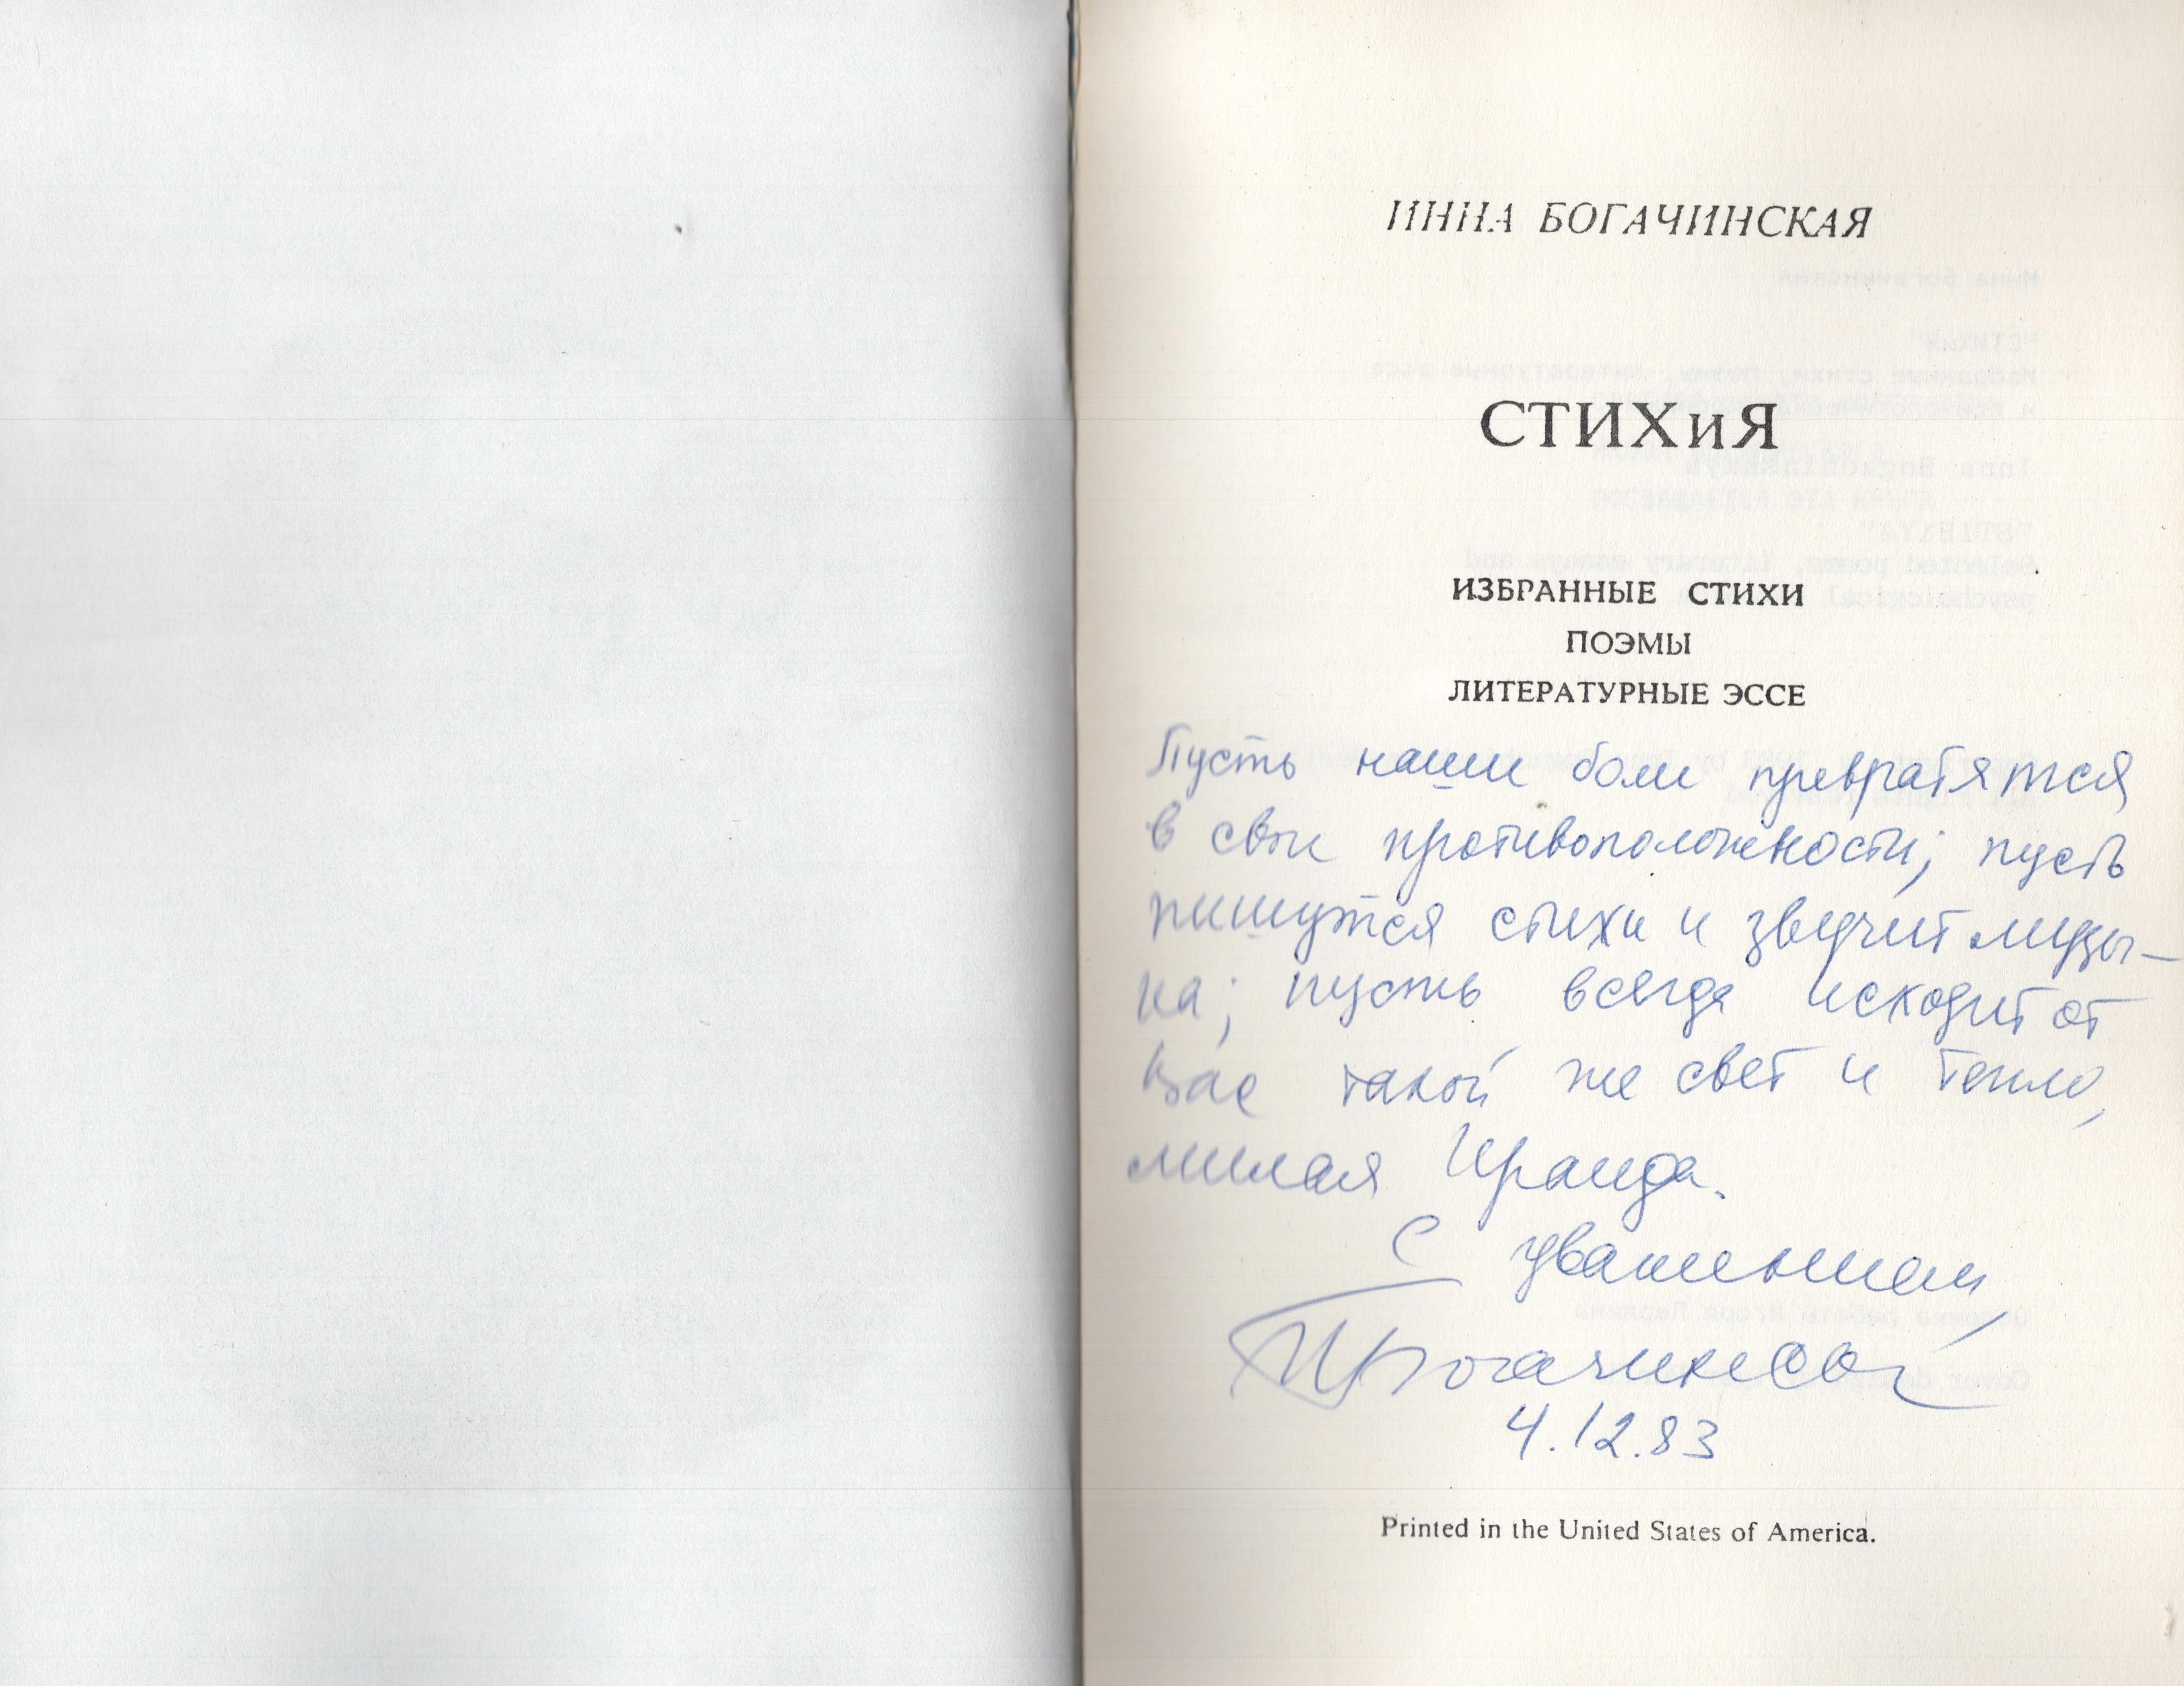 ИННА БОГАЧИНСКАЯ
СТИХиЯ
ИЗБРАННЫЕ СТИХИ
ПОЭМЫ
ЛИТЕРАТУРНЫЕ ЭССЕ
Пусть наши боли превратятся
в свои противоположности; пусть
пишутся стихи и звучит музы-
ка; пусть всегда исходит от
Вас такой же свет и тепло,
милая Ираида.
С уваженьем,
ИБогачинская
4.12.83
Printed in the United States of America.